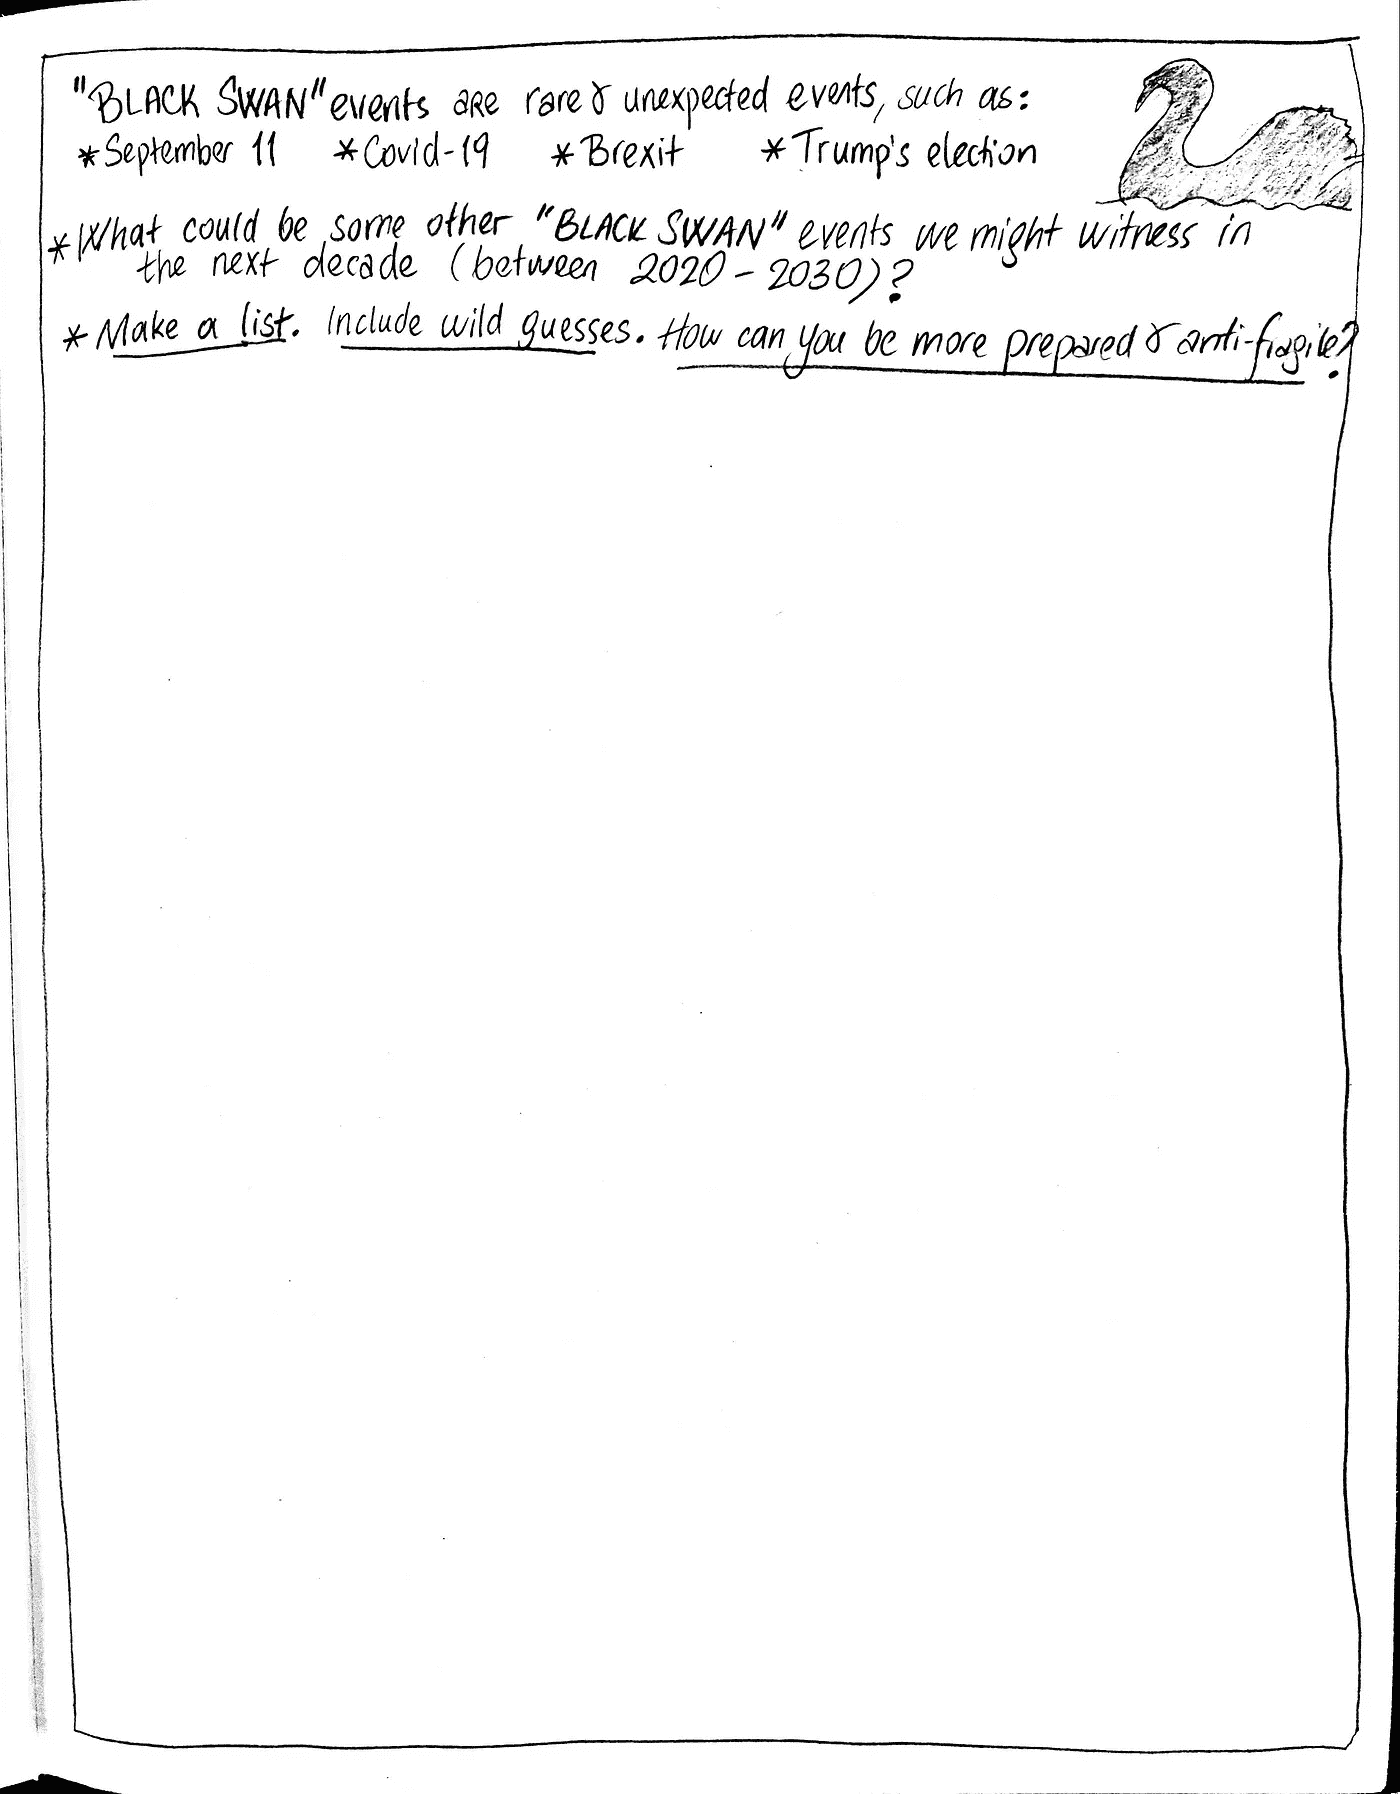 "BLACK SWAN" events are rare & unexpected events, such as:
* September 11 * Covid-19 * Brexit * Trump's election
* What could be some other "BLACK SWAN" events we might witness in
the next decade (between 2020 - 2030)?
* Make a list. Include wild guesses. How can you be more prepared & anti-fragile?